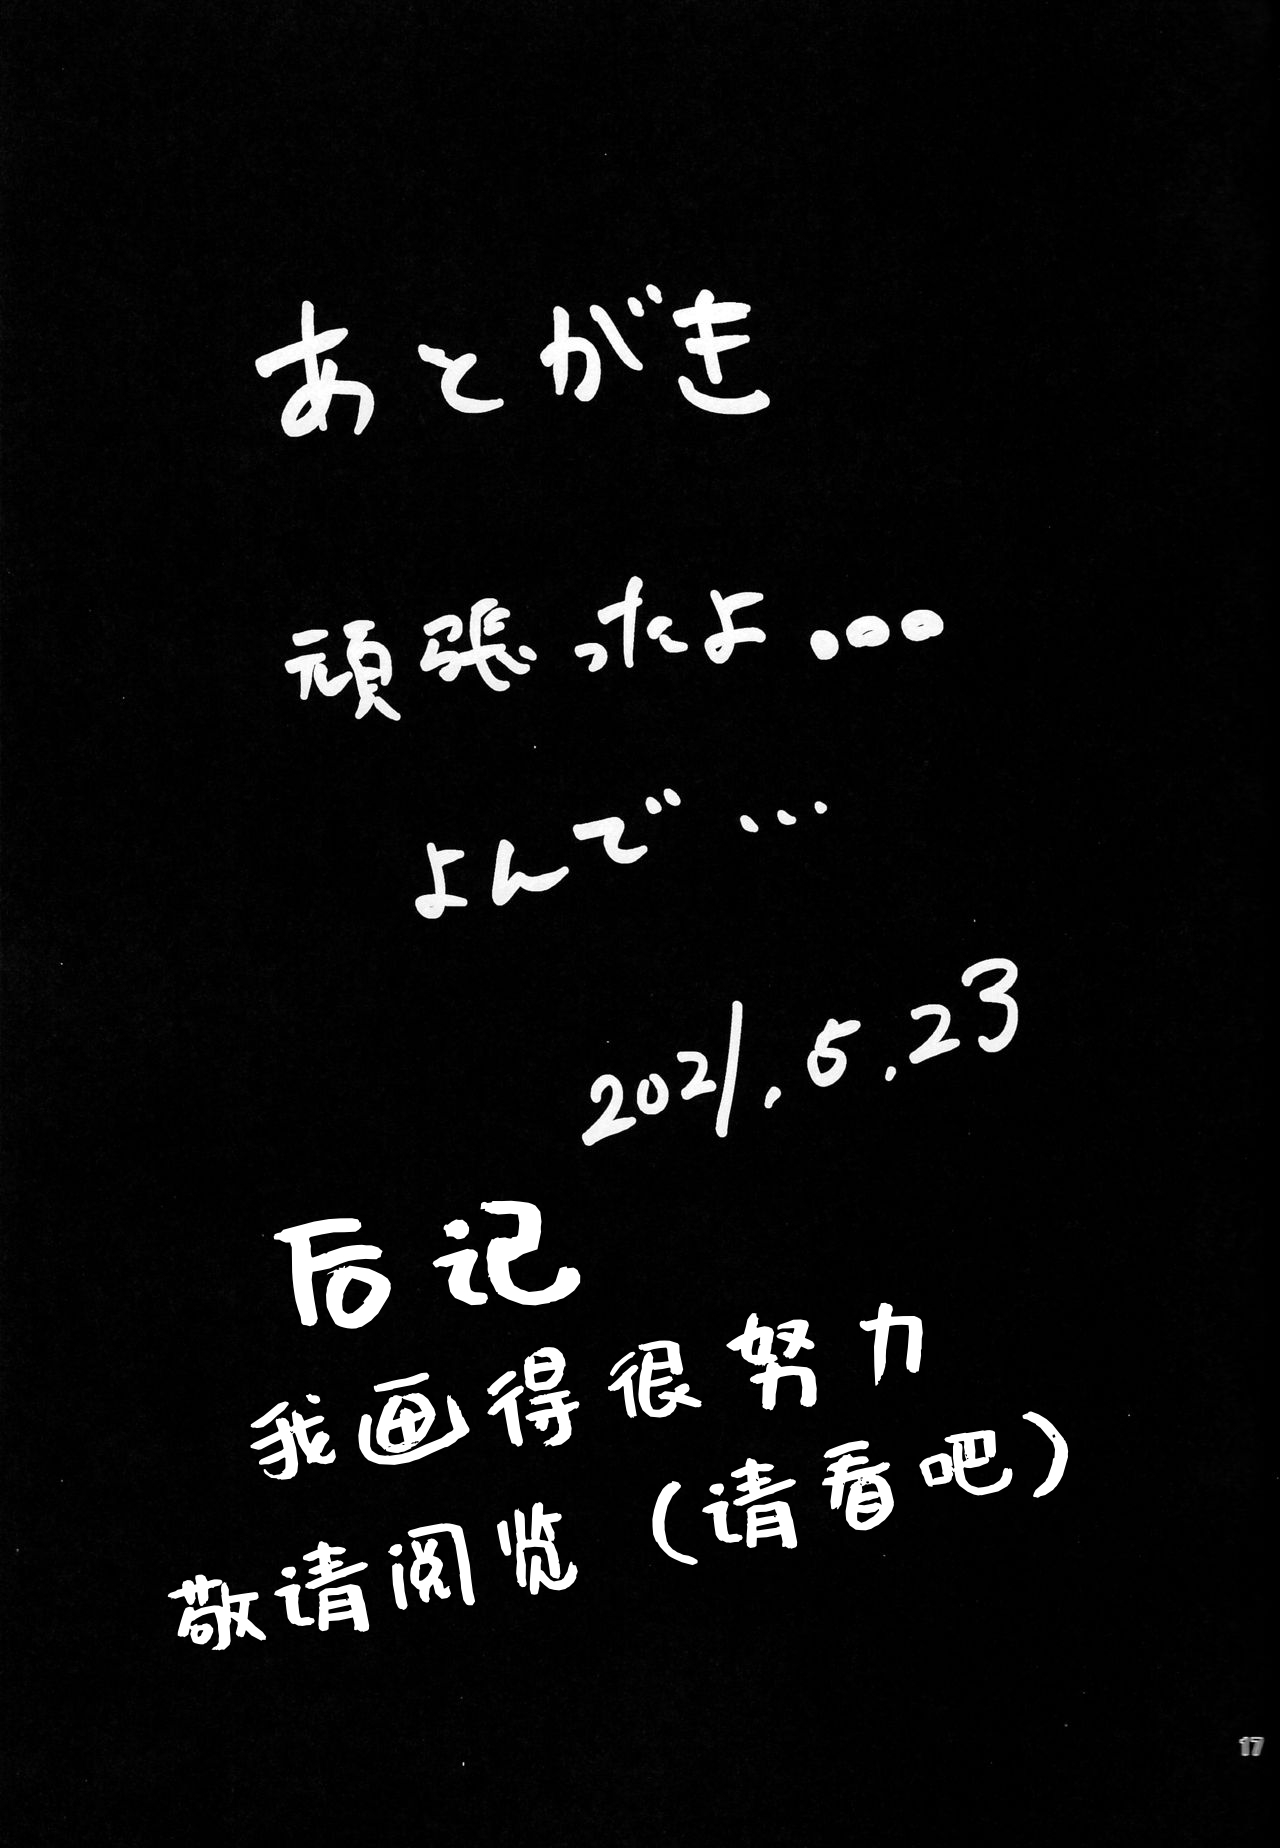 あとがき
頑張ったよ...
よんで...
2021.5.23
后记
我画得很努力
敬请阅览（请看吧）
17